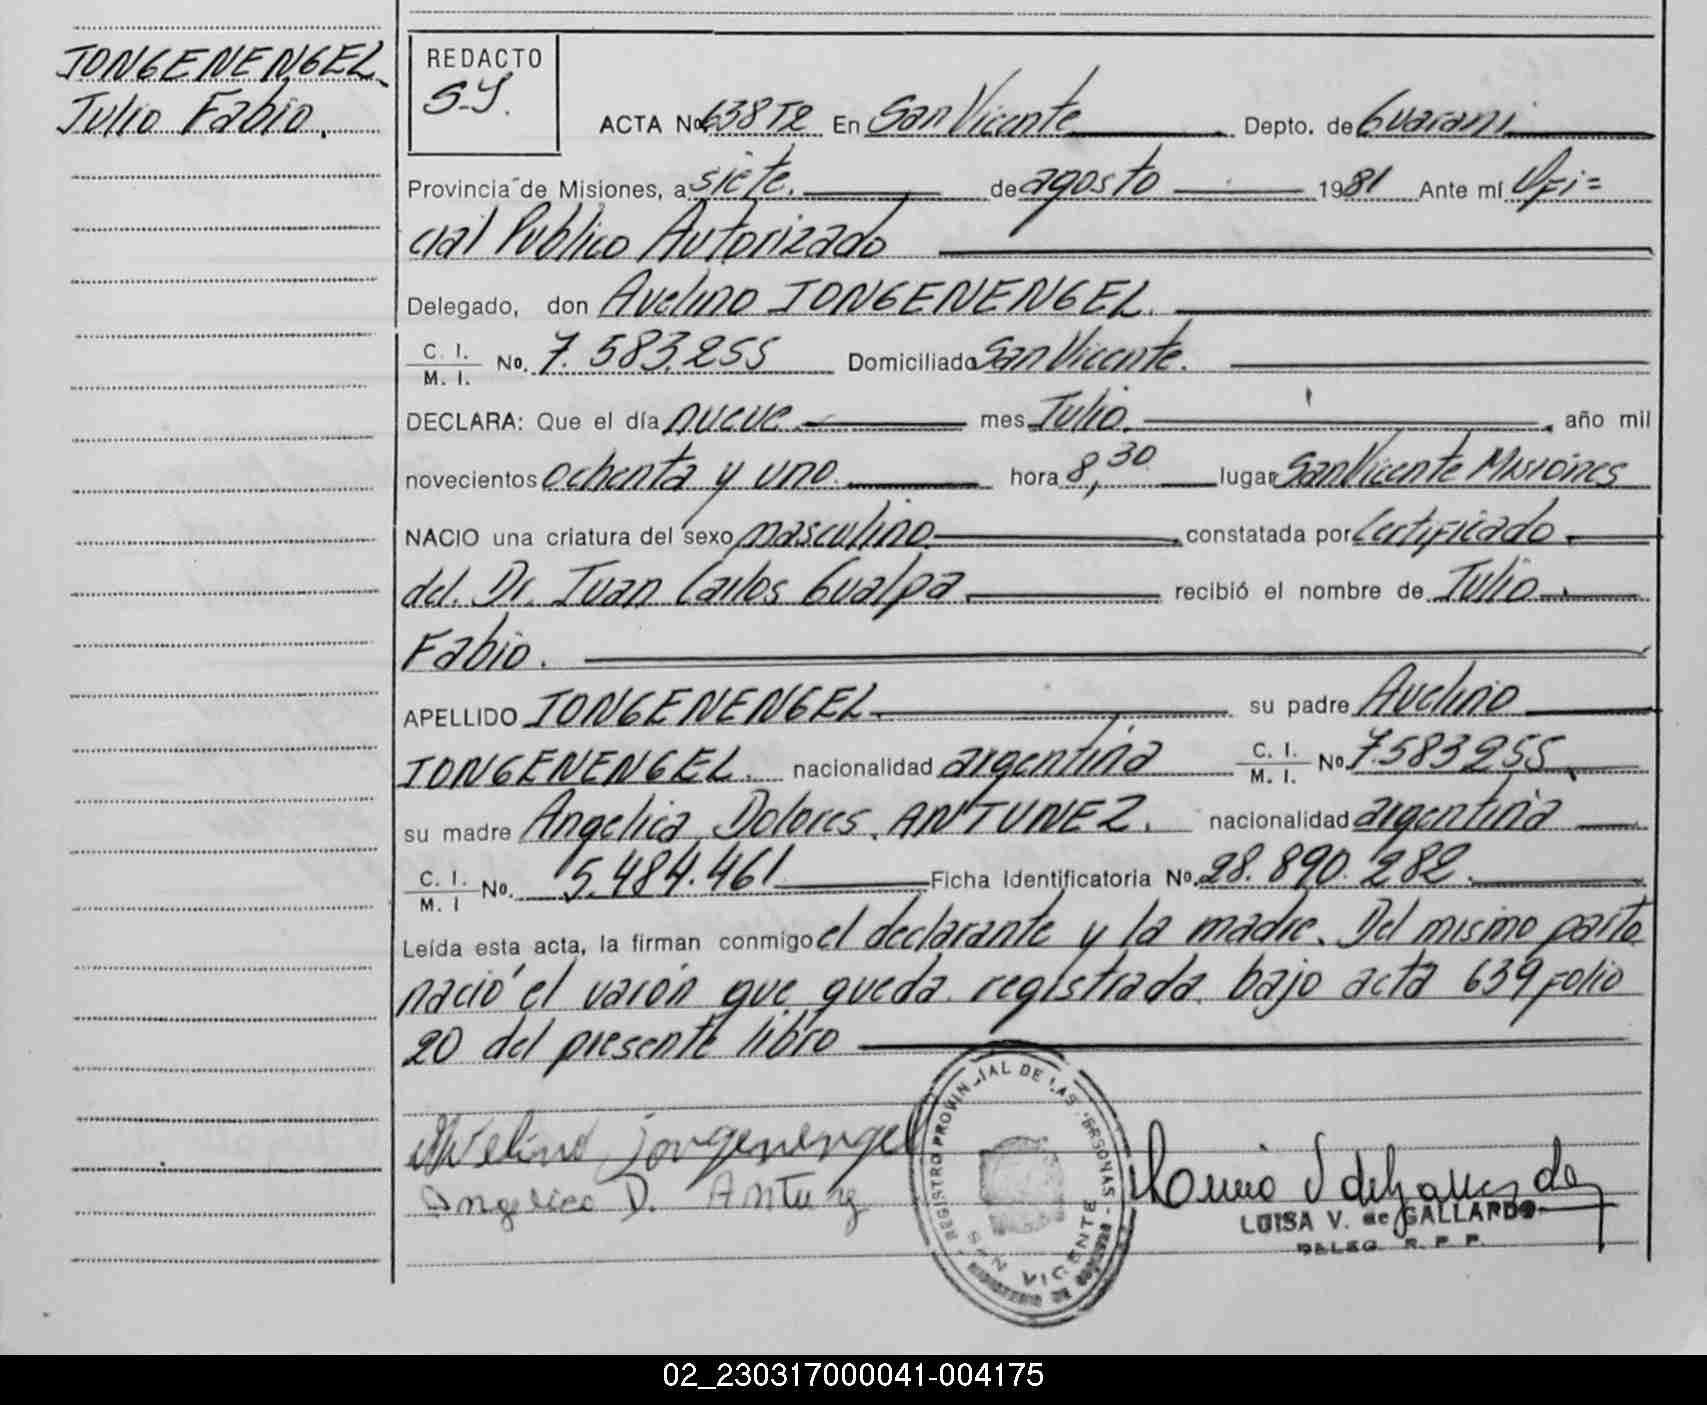 JONGENENGEL
Julio Fabio.
REDACTO
S-Y.
ACTA No 638 T2 En San Vicente Depto. de Guarani
Provincia de Misiones, a siete. de agosto 1981 Ante mí Ofi=
cial Publico Autorizado
Delegado, don Avelino JONGENENGEL.
C. I. / M. I. No. 7.583.255 Domiciliado San Vicente.
DECLARA: Que el día nueve mes Julio. , año mil
novecientos ochenta y uno. hora 8,30 lugar San Vicente Misiones
NACIO una criatura del sexo masculino constatada por Certificado
del. Dr. Juan Carlos Gualpa recibió el nombre de Julio
Fabio.
APELLIDO JONGENENGEL su padre Avelino
JONGENENGEL. nacionalidad argentina C. I. / M. I. No. 7583255
su madre Angelica Dolores ANTUNEZ. nacionalidad argentina
C. I. / M. I No. 5.484.461 Ficha Identificatoria No. 28.890.282.
Leída esta acta, la firman conmigo el declarante y la madre. Del mismo parto
nació el varón que queda registrada bajo acta 639 folio
20 del presente libro
Avelino jongenengel
Angelica D. Antunez
REGISTRO PROVINCIAL DE LAS PERSONAS
SAN VICENTE
MINISTERIO DE GOBIERNO
LUISA V. de GALLARDO
DELEG. R. P. P.
02_230317000041-004175